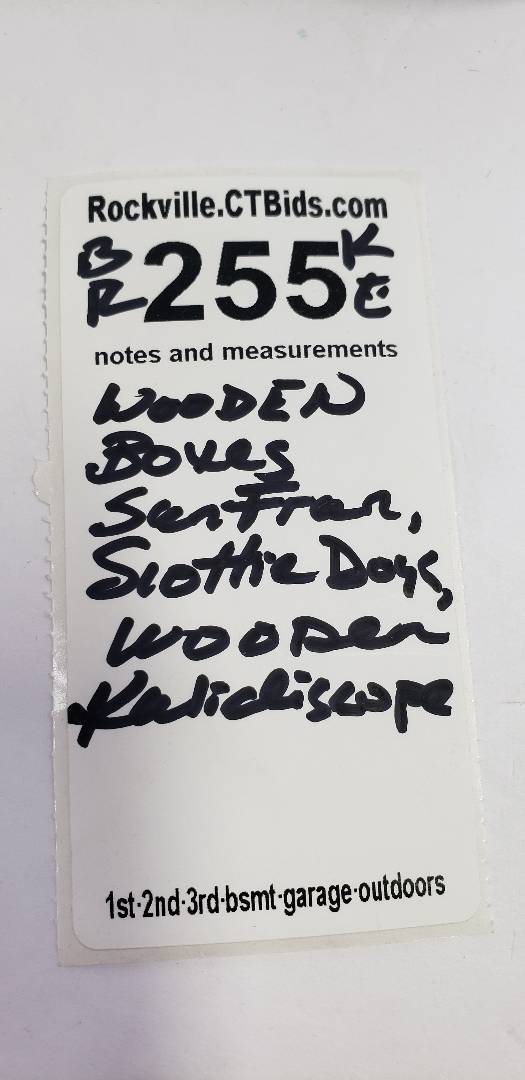 Rockville.CTBids.com
BR 255 KE
notes and measurements
WOODEN
Boxes
San Fran,
Scottie Dogs,
WOODen
Kalidiscope
1st·2nd·3rd·bsmt·garage·outdoors